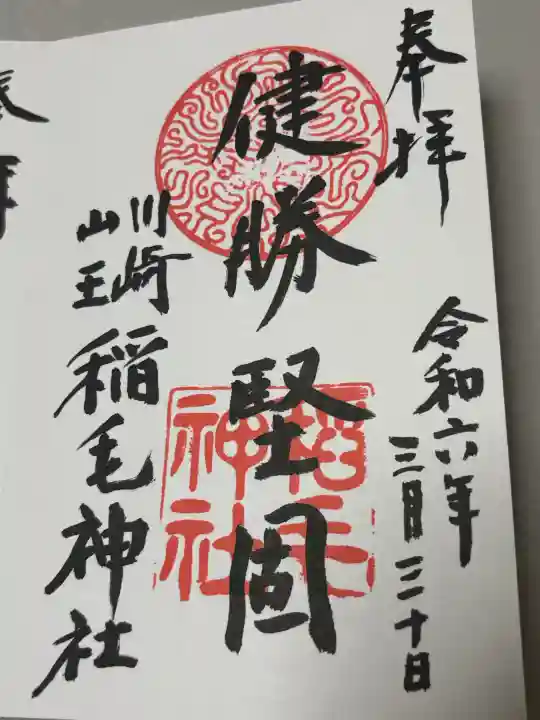 奉拝
令和六年
三月三十日
健勝堅固
川崎
山王
稲毛神社
稲毛
神社
奉拝